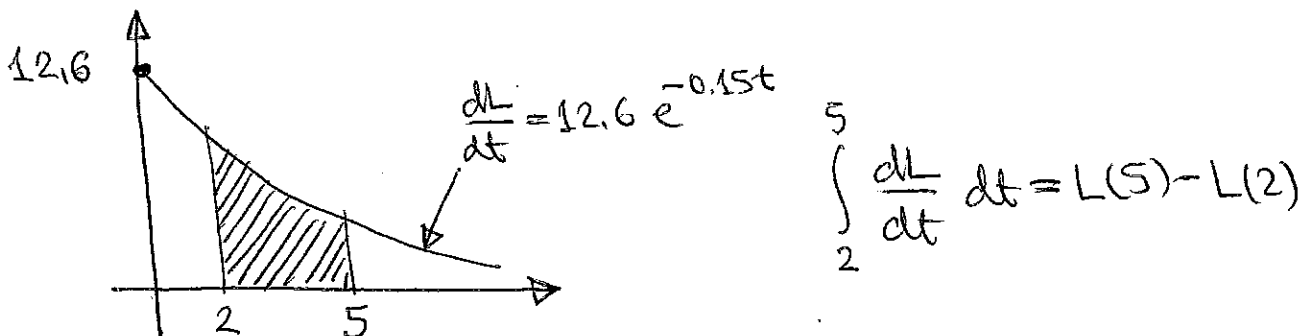 12.6
dL/dt = 12.6 e^{-0.15t}
∫_2^5 dL/dt dt = L(5) - L(2)
2 5